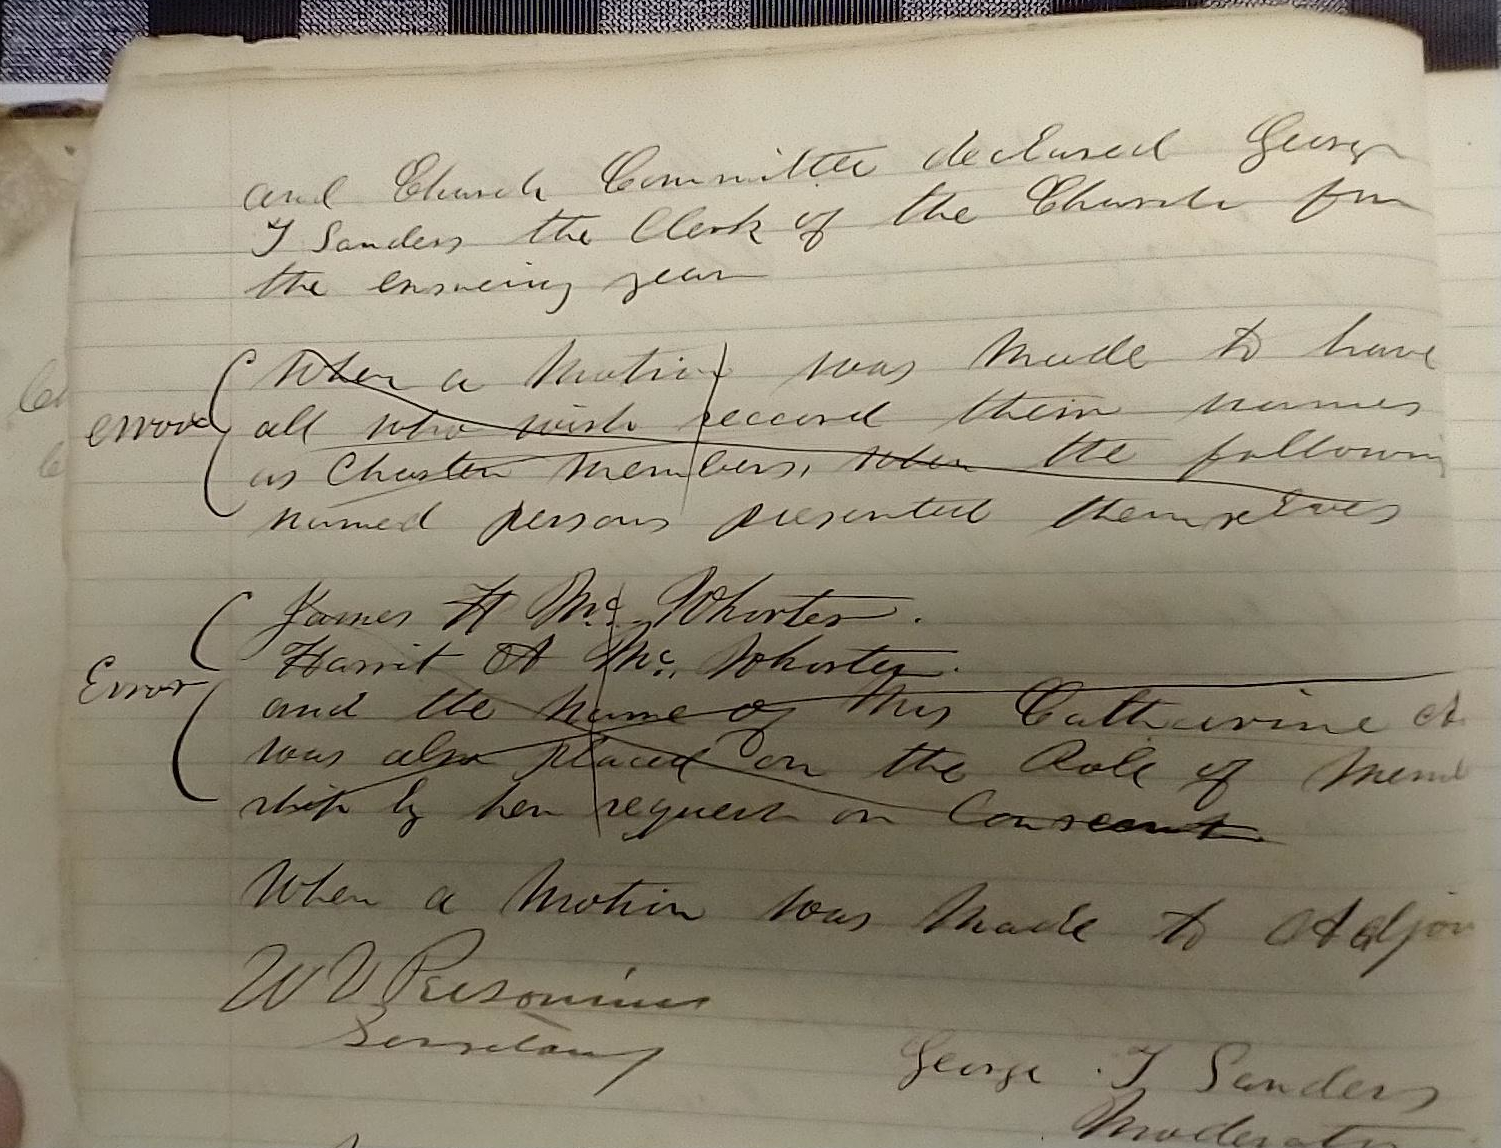 and Church Committee declared George
T Sanders the Clerk of the Church for
the ensueing year
When a Motion was Made to have
error all who wish reccord their names
as Charter Members, when the followin
named persons presented themselves
James H Mc. Whorter.
Harrit A Mc. Whorter.
Error and the name of Mrs Catharine A.
was also placed on the Role of Mem
ship by her request or Conscent.
When a Motion was Made to Adjou
W V
Secretary
George T Sanders
Moderator